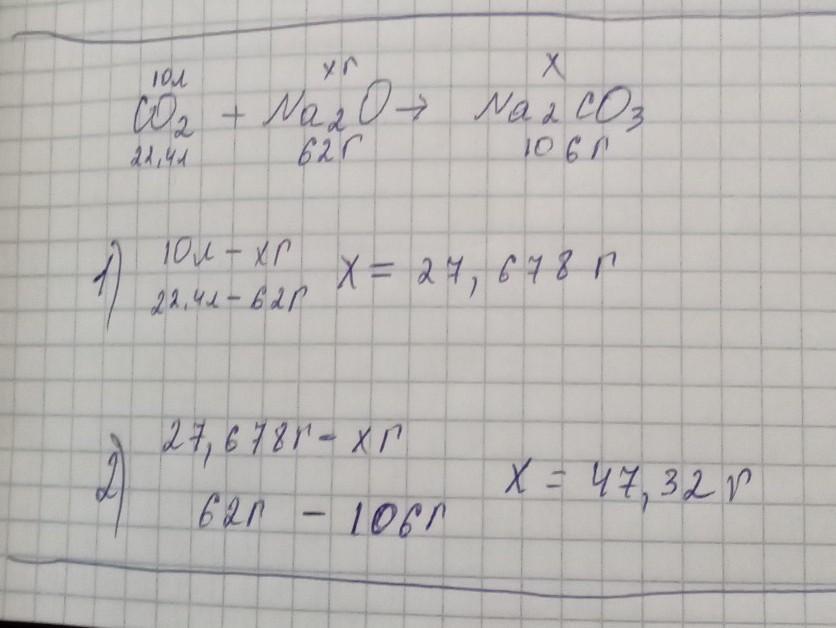 10л xг x
CO2 + Na2O → Na2CO3
22,4л 62г 106г
1) 10л – xг
22,4л – 62г
x = 27,678 г
2) 27,678г – xг
62г – 106г
x = 47,32 г